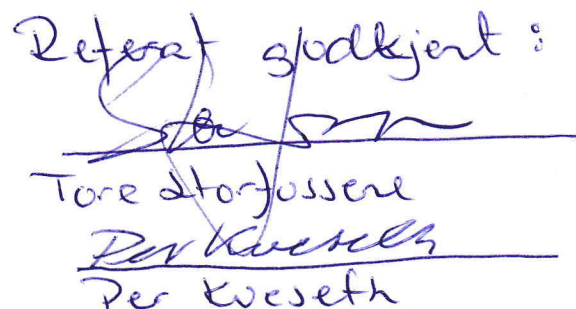 Referat godkjent :
Tore Storfossene
Per Kveseth
Per Kveseth